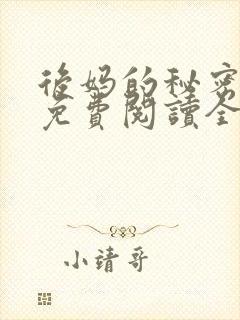 後妈的秘密
免費閱讀全
小靖哥